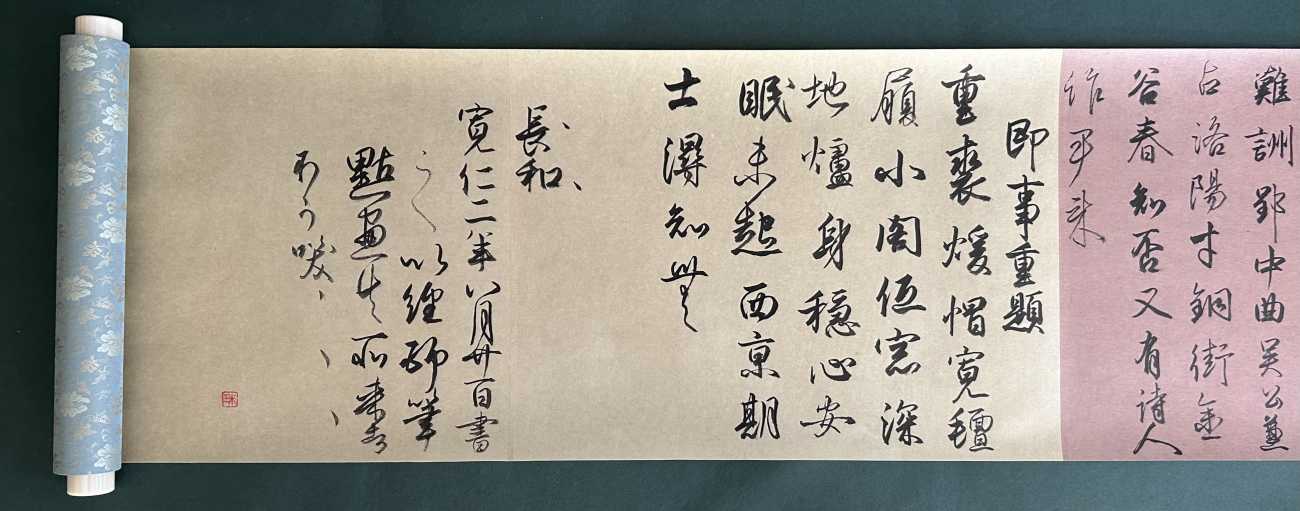 難詶郢中曲吴公兼
占洛陽才銅街金
谷春知否又有詩人
作尹来
即事重題
重裘煖帽寛氈
履小閣低窓深
地爐身穏心安
眠未起西京朝
士得知無
長和
寛仁二年八月廿一日書
之以經師筆
點畫失所来者
不可咲